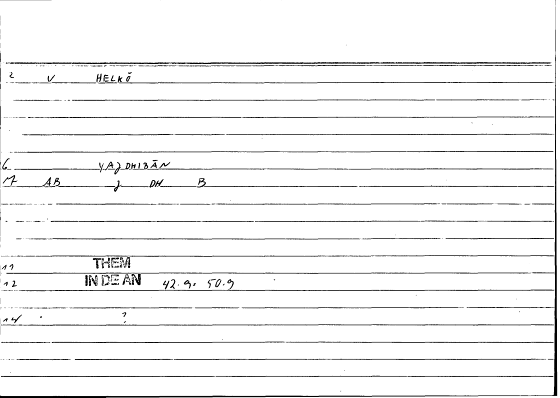 2 V HELKŌ
6 YAJDHIBĀN
7 AB J DH B
11 THEM
12 IN DE AN 42.9. 50.9
14 ?